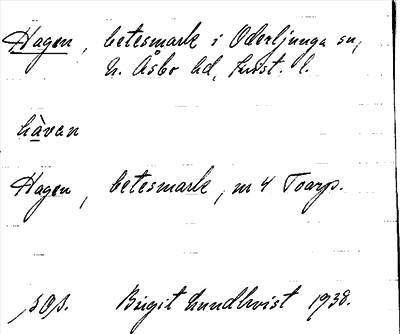 Hagen, betesmark i Oderljunga sn,
N. Åsbo hd, Krist. l.
hàvan
Hagen, betesmark, nr 4 Toarp.
Birgit Lundkvist 1938.